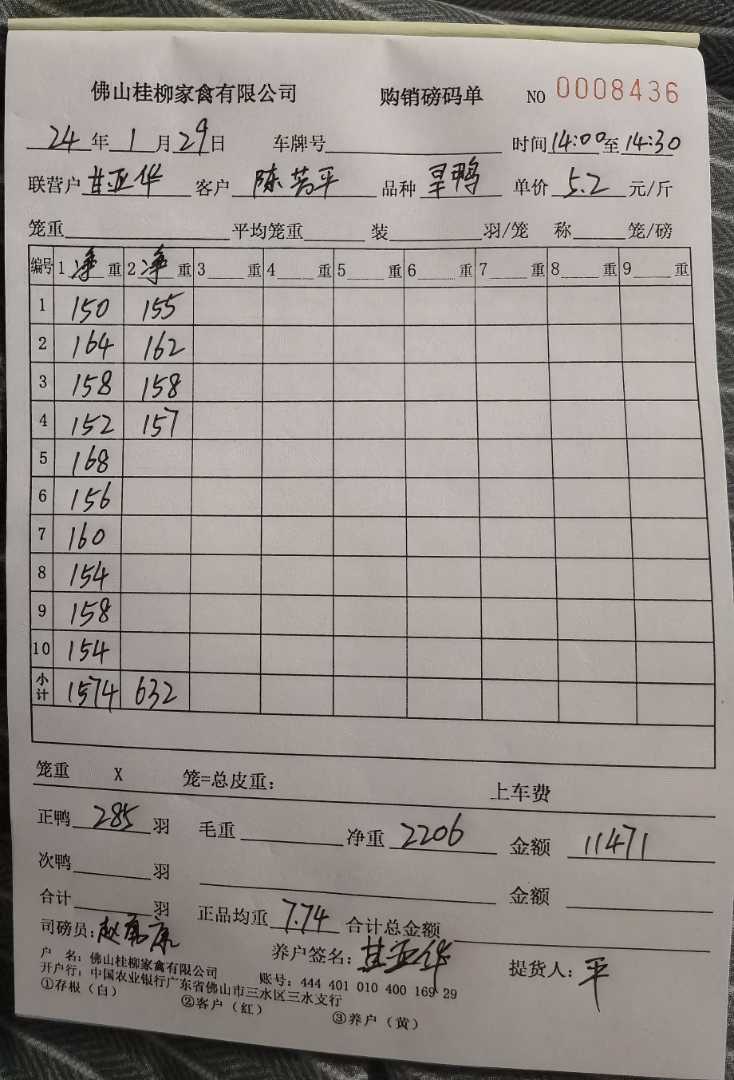 佛山桂柳家禽有限公司 购销磅码单 NO 0008436
24 年 1 月 29 日 车牌号 时间 14:00 至 14:30
联营户 甘亚华 客户 陈芳平 品种 旱鸭 单价 5.2 元/斤
笼重 平均笼重 装 羽/笼 称 笼/磅
编号 1 净 重 2 净 重 3 重 4 重 5 重 6 重 7 重 8 重 9 重
1 150 155
2 164 162
3 158 158
4 152 157
5 168
6 156
7 160
8 154
9 158
10 154
小计 1574 632
笼重 X 笼=总皮重： 上车费
正鸭 285 羽 毛重 净重 2206 金额 11471
次鸭 羽 金额
合计 羽 正品均重 7.74 合计总金额
司磅员：赵 康 养户签名：甘亚华 提货人：平
户 名：佛山桂柳家禽有限公司 账号：444 401 010 400 169 29
开户行：中国农业银行广东省佛山市三水区三水支行
①存根（白） ②客户（红） ③养户（黄）